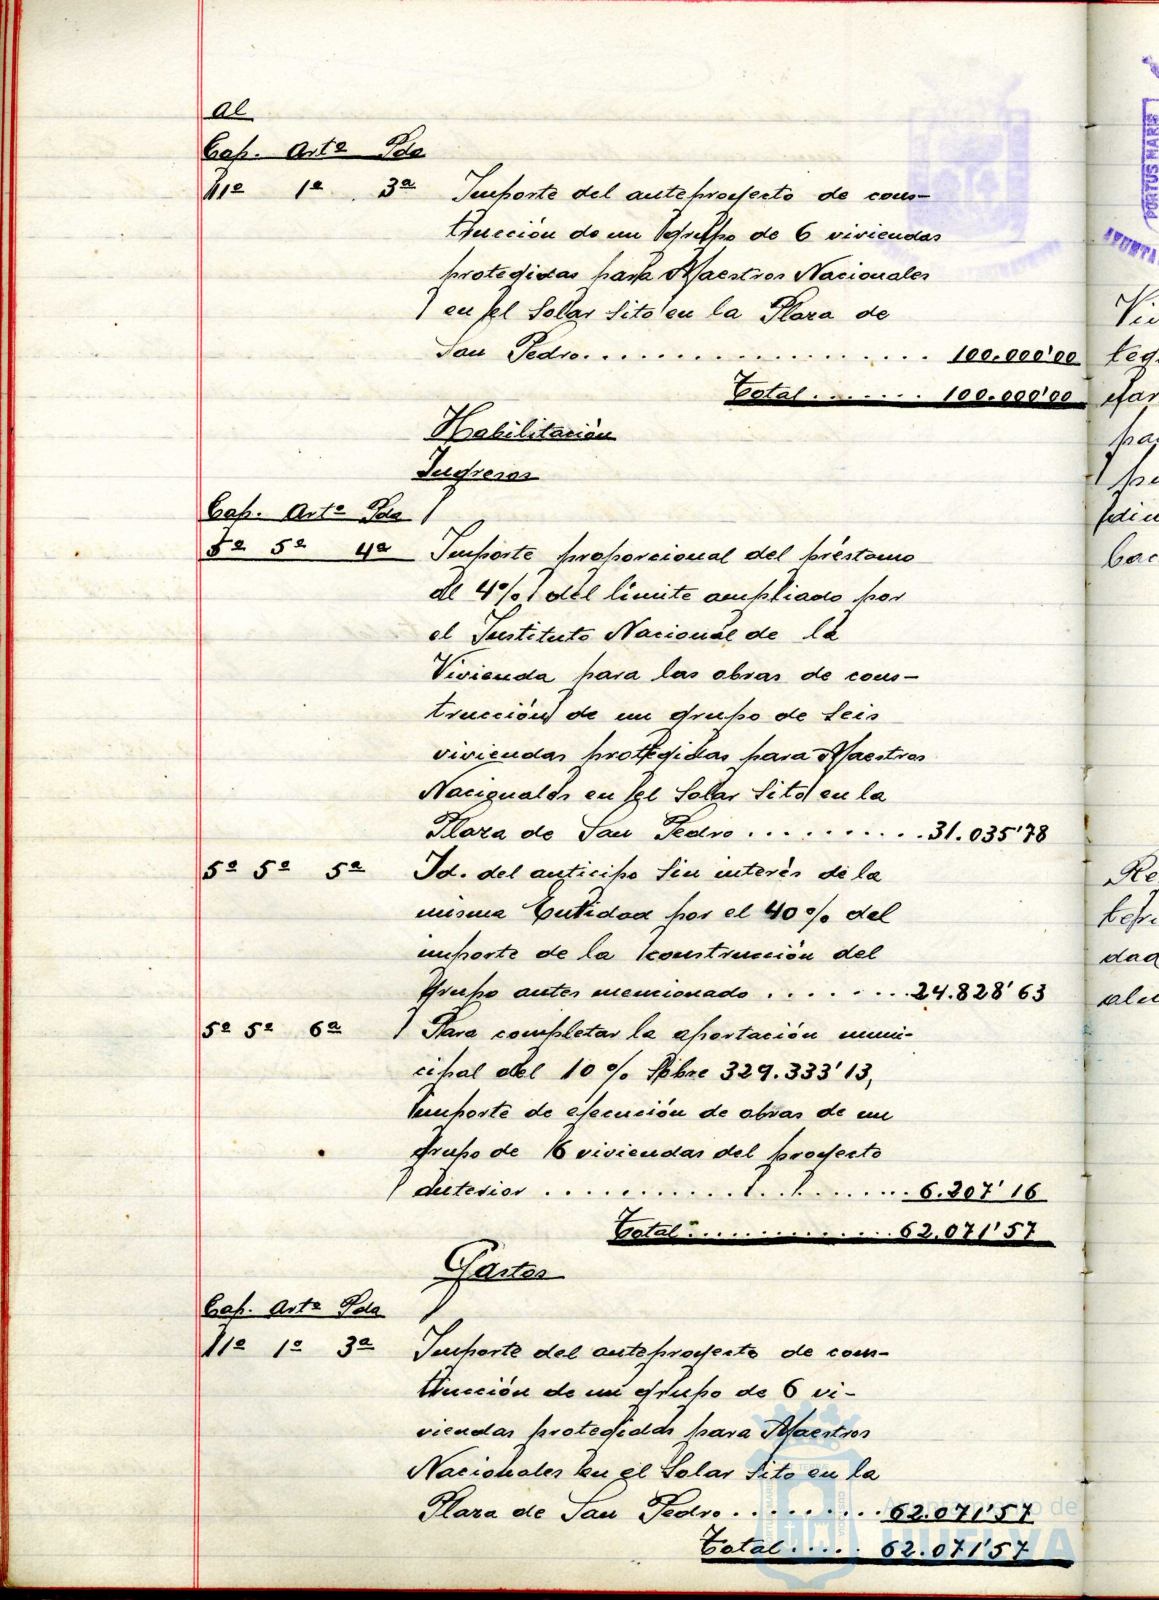 Al
Cap. Artº Pda
11º 1º 3ª Importe del anteproyecto de cons-
trucción de un grupo de 6 viviendas
protegidas para Maestros Nacionales
en el Solar Sito en la Plaza de
San Pedro.................... 100.000'00
Total....... 100.000'00
Habilitación
Ingresos
Cap. Artº Pda
5º 5º 4ª Importe proporcional del préstamo
al 4% del límite ampliado por
el Instituto Nacional de la
Vivienda para las obras de cons-
trucción de un grupo de Seis
viviendas protegidas para Maestros
Nacionales en el Solar Sito en la
Plaza de San Pedro..........31.035'78
5º 5º 5ª Id. del anticipo Sin interés de la
misma Entidad por el 40% del
importe de la construcción del
grupo antes mencionado.......24.828'63
5º 5º 6ª Para completar la aportación muni-
cipal del 10% Sobre 329.333'13,
importe de ejecución de obras de un
grupo de 6 viviendas del proyecto
anterior....................6.207'16
Total..............62.071'57
Gastos
Cap. Artº Pda
11º 1º 3ª Importe del anteproyecto de cons-
trucción de un grupo de 6 vi-
viendas protegidas para Maestros
Nacionales en el Solar Sito en la
Plaza de San Pedro.........62.071'57
Total..... 62.071'57
Ayuntamiento de
HUELVA
PORTUS MARIS